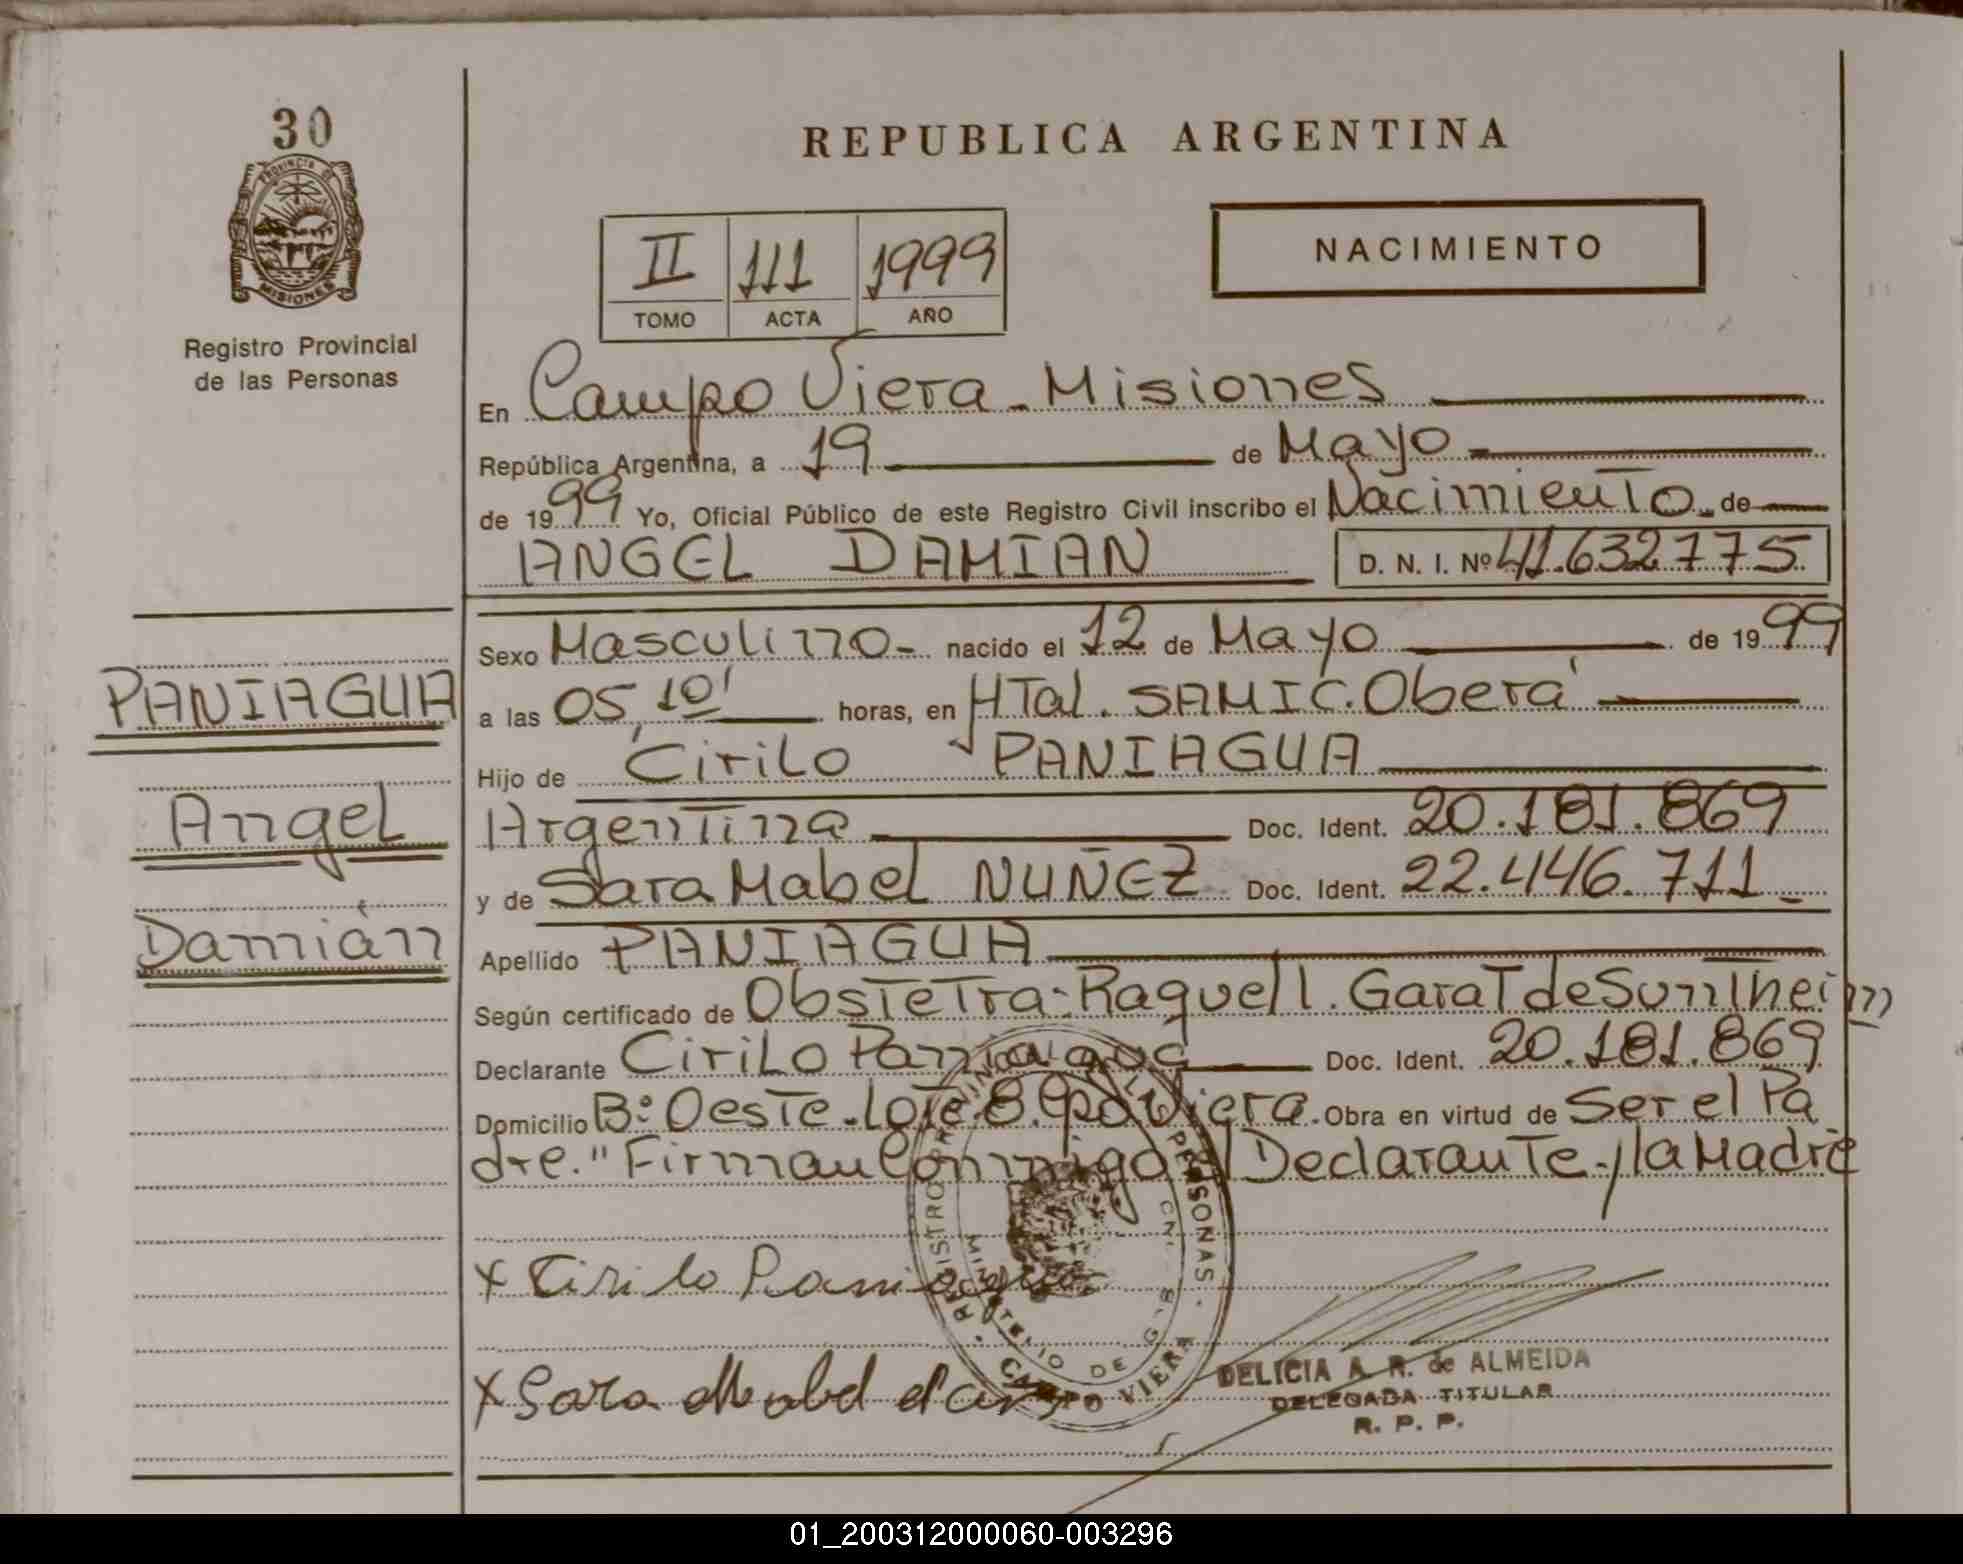 30
PROVINCIA DE
MISIONES
Registro Provincial
de las Personas
REPUBLICA ARGENTINA
II 111 1999
TOMO ACTA AÑO
NACIMIENTO
En Campo Viera - Misiones
República Argentina, a 19 de Mayo
de 1999 Yo, Oficial Público de este Registro Civil inscribo el Nacimiento de
ANGEL DAMIAN D. N. I. Nº 41.632775
Sexo Masculino - nacido el 12 de Mayo de 1999
a las 05,10' horas, en HTal. SAMIC. Oberá
Hijo de Cirilo PANIAGUA
Argentina Doc. Ident. 20.181.869
y de Sara Mabel NUÑEZ Doc. Ident. 22.446.711
Apellido PANIAGUA
Según certificado de Obstetra: Raquel I. Garat de Suntheim
Declarante Cirilo Paniagua Doc. Ident. 20.181.869
Domicilio Bº Oeste - Lote 8. Cpo Viera. Obra en virtud de Ser el Pa
dre." Firman Conmigo el Declarante y la Madre
PANIAGUA
Angel
Damián
x Cirilo Paniagua
x Sara Mabel
REGISTRO PROVINCIAL DE LAS PERSONAS
MINISTERIO DE G
CAMPO VIERA
DELICIA A. R. de ALMEIDA
DELEGADA TITULAR
R. P. P.
01_200312000060-003296